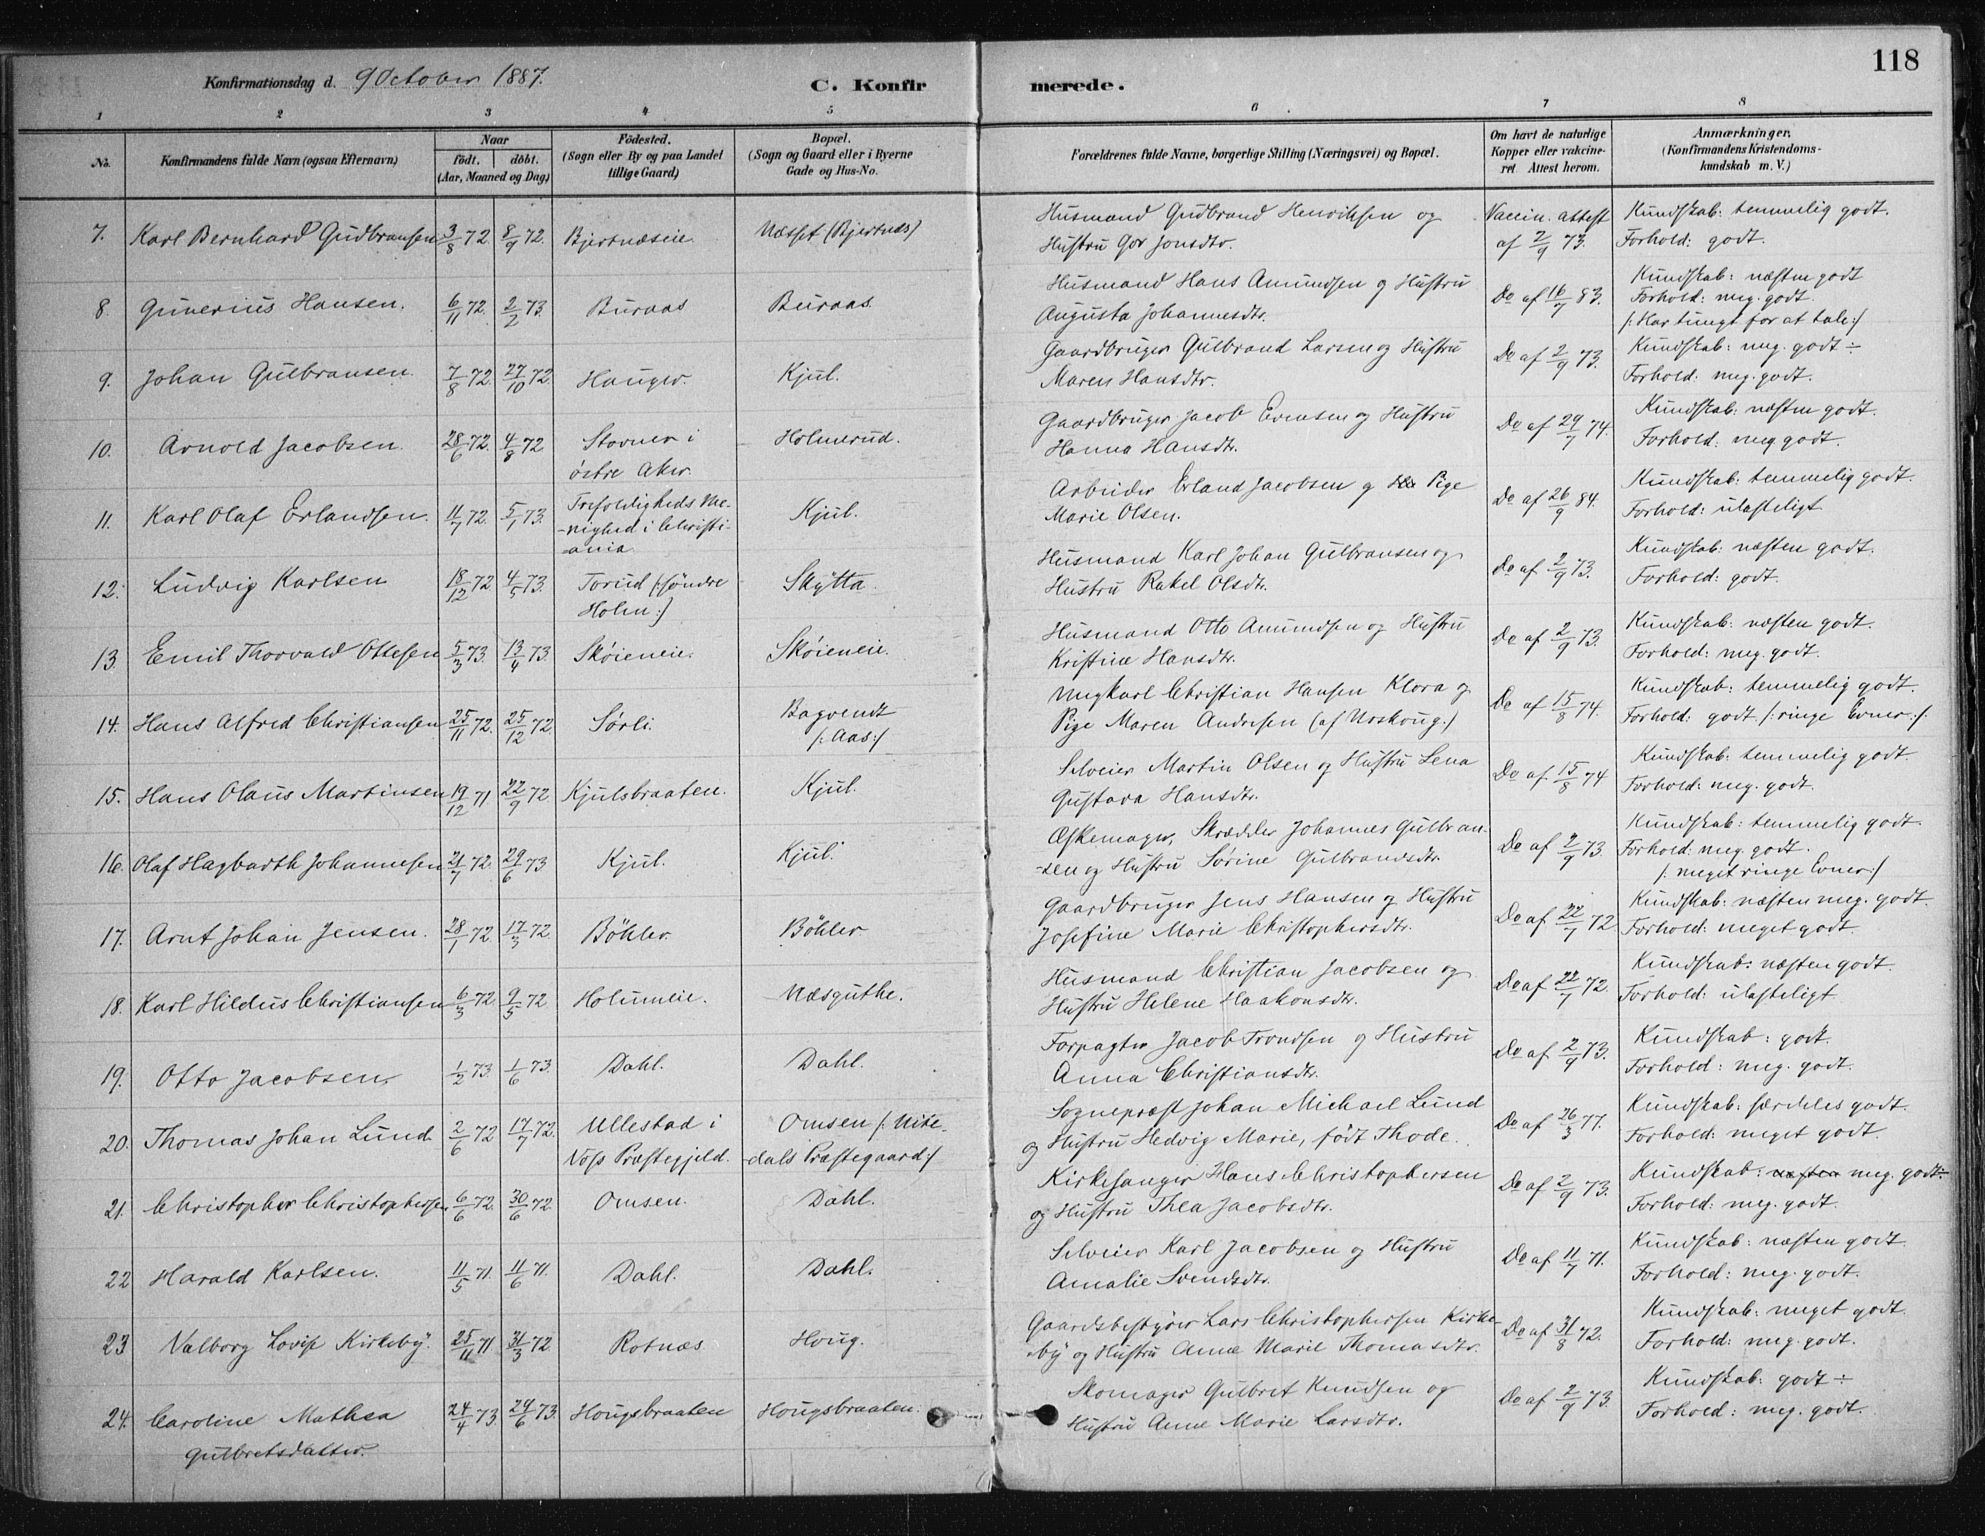 118
Konfirmationsdag d. 9 October 1887. C. Konfirmerede.
1 2 3 4 5 6 7 8
No. Konfirmandens fulde Navn (ogsaa Efternavn) Naar födt. döbt. (Aar, Maaned og Dag) Födested. (Sogn eller By og paa Landet tillige Gaard) Bopæl. (Sogn og Gaard eller i Byerne Gade og Hus-No. Forældrenes fulde Navne, borgerlige Stilling (Næringsvei) og Bopæl. Om havt de naturlige Kopper eller vakcineret Attest herom. Anmærkninger. (Konfirmandens Kristendomskundskab m. V.)
7. Karl Bernhard Gudbransen 3/8 72. 8/9 72. Bjertnæseie Næsset (Bjertnæs) Husmand Gudbrand Henriksen og Hustru Gor Jonsdtr. Vaccin. attest af 2/9 73. Kundskab: temmelig godt. Forhold: godt.
8. Gunerius Hansen. 6/11 72. 2/2 73. Buraas Buraas. Husmand Hans Amundsen og Hustru Augusta Johannesdtr. Do af 16/7 83. Kundskab: næsten godt Forhold: meg. godt. /: Har tungt for at tale:/
9. Johan Gulbransen. 7/8 72. 27/10 72. Hauger. Kjul. Gaardbruger Gulbrand Larsen og Hustru Maren Hansdtr. Do af 2/9 73. Kundskab: meg. godt ÷ Forhold: meg. godt.
10. Arnold Jacobsen. 28/6 72. 4/8 72 Stovner i östre Aker. Holmerud. Gaardbruger Jacob Evensen og Hustru Hanna Hansdtr. Do af 29/7 74. Kundskab: næsten godt. Forhold: meg. godt.
11. Karl Olaf Erlandsen. 11/7 72. 5/1 73. Trefoldigheds Me-nighed i Christi-ania Kjul. Arbeider Erland Jacobsen og Pige Marie Olsen. Do af 26/9 84. Kundskab: temmelig godt. Forhold: ulasteligt
12. Ludvig Karlsen 18/12 72 4/5 73. Torud (: söndre Holm:) Skÿtta. Husmand Karl Johan Gulbransen og Hustru Rakel Olsdtr. Do af 2/9 73. Kundskab: næsten godt. Forhold: godt.
13. Emil Thorvald Ottesen 5/3 73. 13/4 73. Skøieneie. Skøieneie. Husmand Otto Amundsen og Hustru Kristine Hansdtr. Do af 2/9 73. Kundskab: næsten godt. Forhold: meg. godt.
14. Hans Alfred Christiansen 25/11 72. 25/12 72. Sørli. Bagvendt /: Aas:/ Ungkarl Christian Hansen Klora og Pige Maren Andresen (af Urskoug:) Do af 15/8 74. Kundskab: temmelig godt. Forhold: godt /: ringe Evner:/.
15. Hans Olaus Martinsen 19/12 71 22/9 72 Kjulsbraaten. Kjul. Selveier Martin Olsen og Hustru Lena Gustava Hansdtr. Do af 15/8 74 Kundskab: temmelig godt. Forhold: meg. godt.
16. Olaf Hagbarth Johannesen 21/7 72. 29/6 73. Kjul. Kjul. Æskemager, Skrædder Johannes Gulbran-sen og Hustru Sörine Gulbrandsdtr. Do af 2/9 73. Kundskab: temmelig godt. Forhold: meg. godt. /: meget ringe Evner:/
17. Arnt Johan Jensen. 28/1 72. 17/3 72. Böhler. Böhler Gaardbruger Jens Hansen og Hustru Josefine Marie Christophersdtr. Do af 22/7 72 Kundskab: næsten meg. godt. Forhold: meget godt.
18. Karl Hildus Christiansen 6/3 72. 9/5 72 Holumeie. Næsguthe. Husmand Christian Jacobsen og Hustru Helene Haakonsdtr. Do af 22/7 72. Kundskab: næsten godt. Forhold: ulasteligt
19. Otto Jacobsen. 1/2 73. 1/6 73. Dahl. Dahl. Forpagter Jacob Trondsen og Hustru Anna Christiansdtr. Do af 2/9 73. Kundskab: godt. Forhold: meg. godt.
20. Thomas Johan Lund. 2/6 72 17/7 72. Ullestad i Voss Præstegjeld. Omsen /: Nite-dals Præstegaard:/ Sognepræst Johan Michael Lund og Hustru Hedvig Marie, født Thode. Do af 26/3 77. Kundskab: særdeles godt. Forhold: meget godt.
21. Christopher Christophersen 6/6 72. 30/6 72. Omsen. Dahl. Kirkesanger Hans Christophersen og Hustru Thea Jacobsdtr. Do af 2/9 73. Kundskab: næsten meg. godt÷ Forhold: meg. godt.
22 Harald Karlsen. 11/5 71. 11/6 71. Dahl. Dahl. Selveier Karl Jacobsen og Hustru Amalie Svendsdtr. Do af 11/7 71. Kundskab: næsten godt Forhold: meg. godt.
23 Valborg Lovise Kirkeby. 25/11 71 31/3 72 Rotnæs Houg. Gaardsbestyrer Lars Christophersen Kirke-by og Hustru Anne Marie Thomasdtr. Do af 31/8 72. Kundskab: meget godt. Forhold: meget godt.
24. Caroline Mathea Gulbretsdatter. 24/4 73. 29/6 73. Hougsbraaten Hougsbraaten. Skomager Gulbret Knudsen og Hustru Anne Marie Larsdtr. Do af 2/9 73. Kundskab: godt ÷ Forhold: meg. godt.